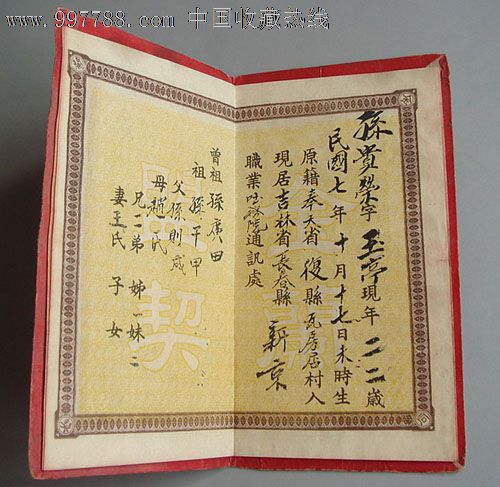 www.997788.com 中国收藏热线
孫貴榮字玉亭現年二二歲
民國七年十月十七日未時生
原籍奉天省復縣瓦房居村人
現居吉林省長春縣新京
職業 通訊處
曾祖孫廣田
祖孫千甲
父孫則成
母趙氏
兄二弟 姊一妹二
妻王氏 子 女
金蘭
契